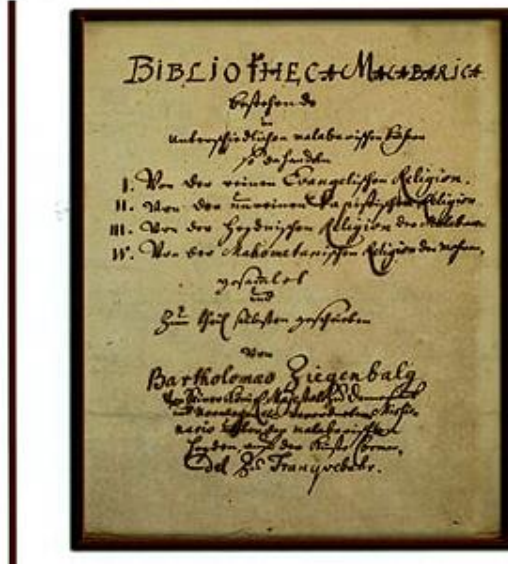 BIBLIOTHECA MALABARICA
bestehende
in
unterschiedlichen malabarischen Büchern
so da handeln
I. Von der reinen Evangelischen Religion.
II. Von der unreinen Papistischen Religion
III. Von der Heydnischen Religion der Malabaren
IV. Von der Mahometanischen Religion der Mohren,
gesamlet
und
Zum theil selbsten geschrieben
Von
Bartholomæo Ziegenbalg
malabarischen
Heyden, auff der Küste Coroman-
del Zu Tranquebahr.